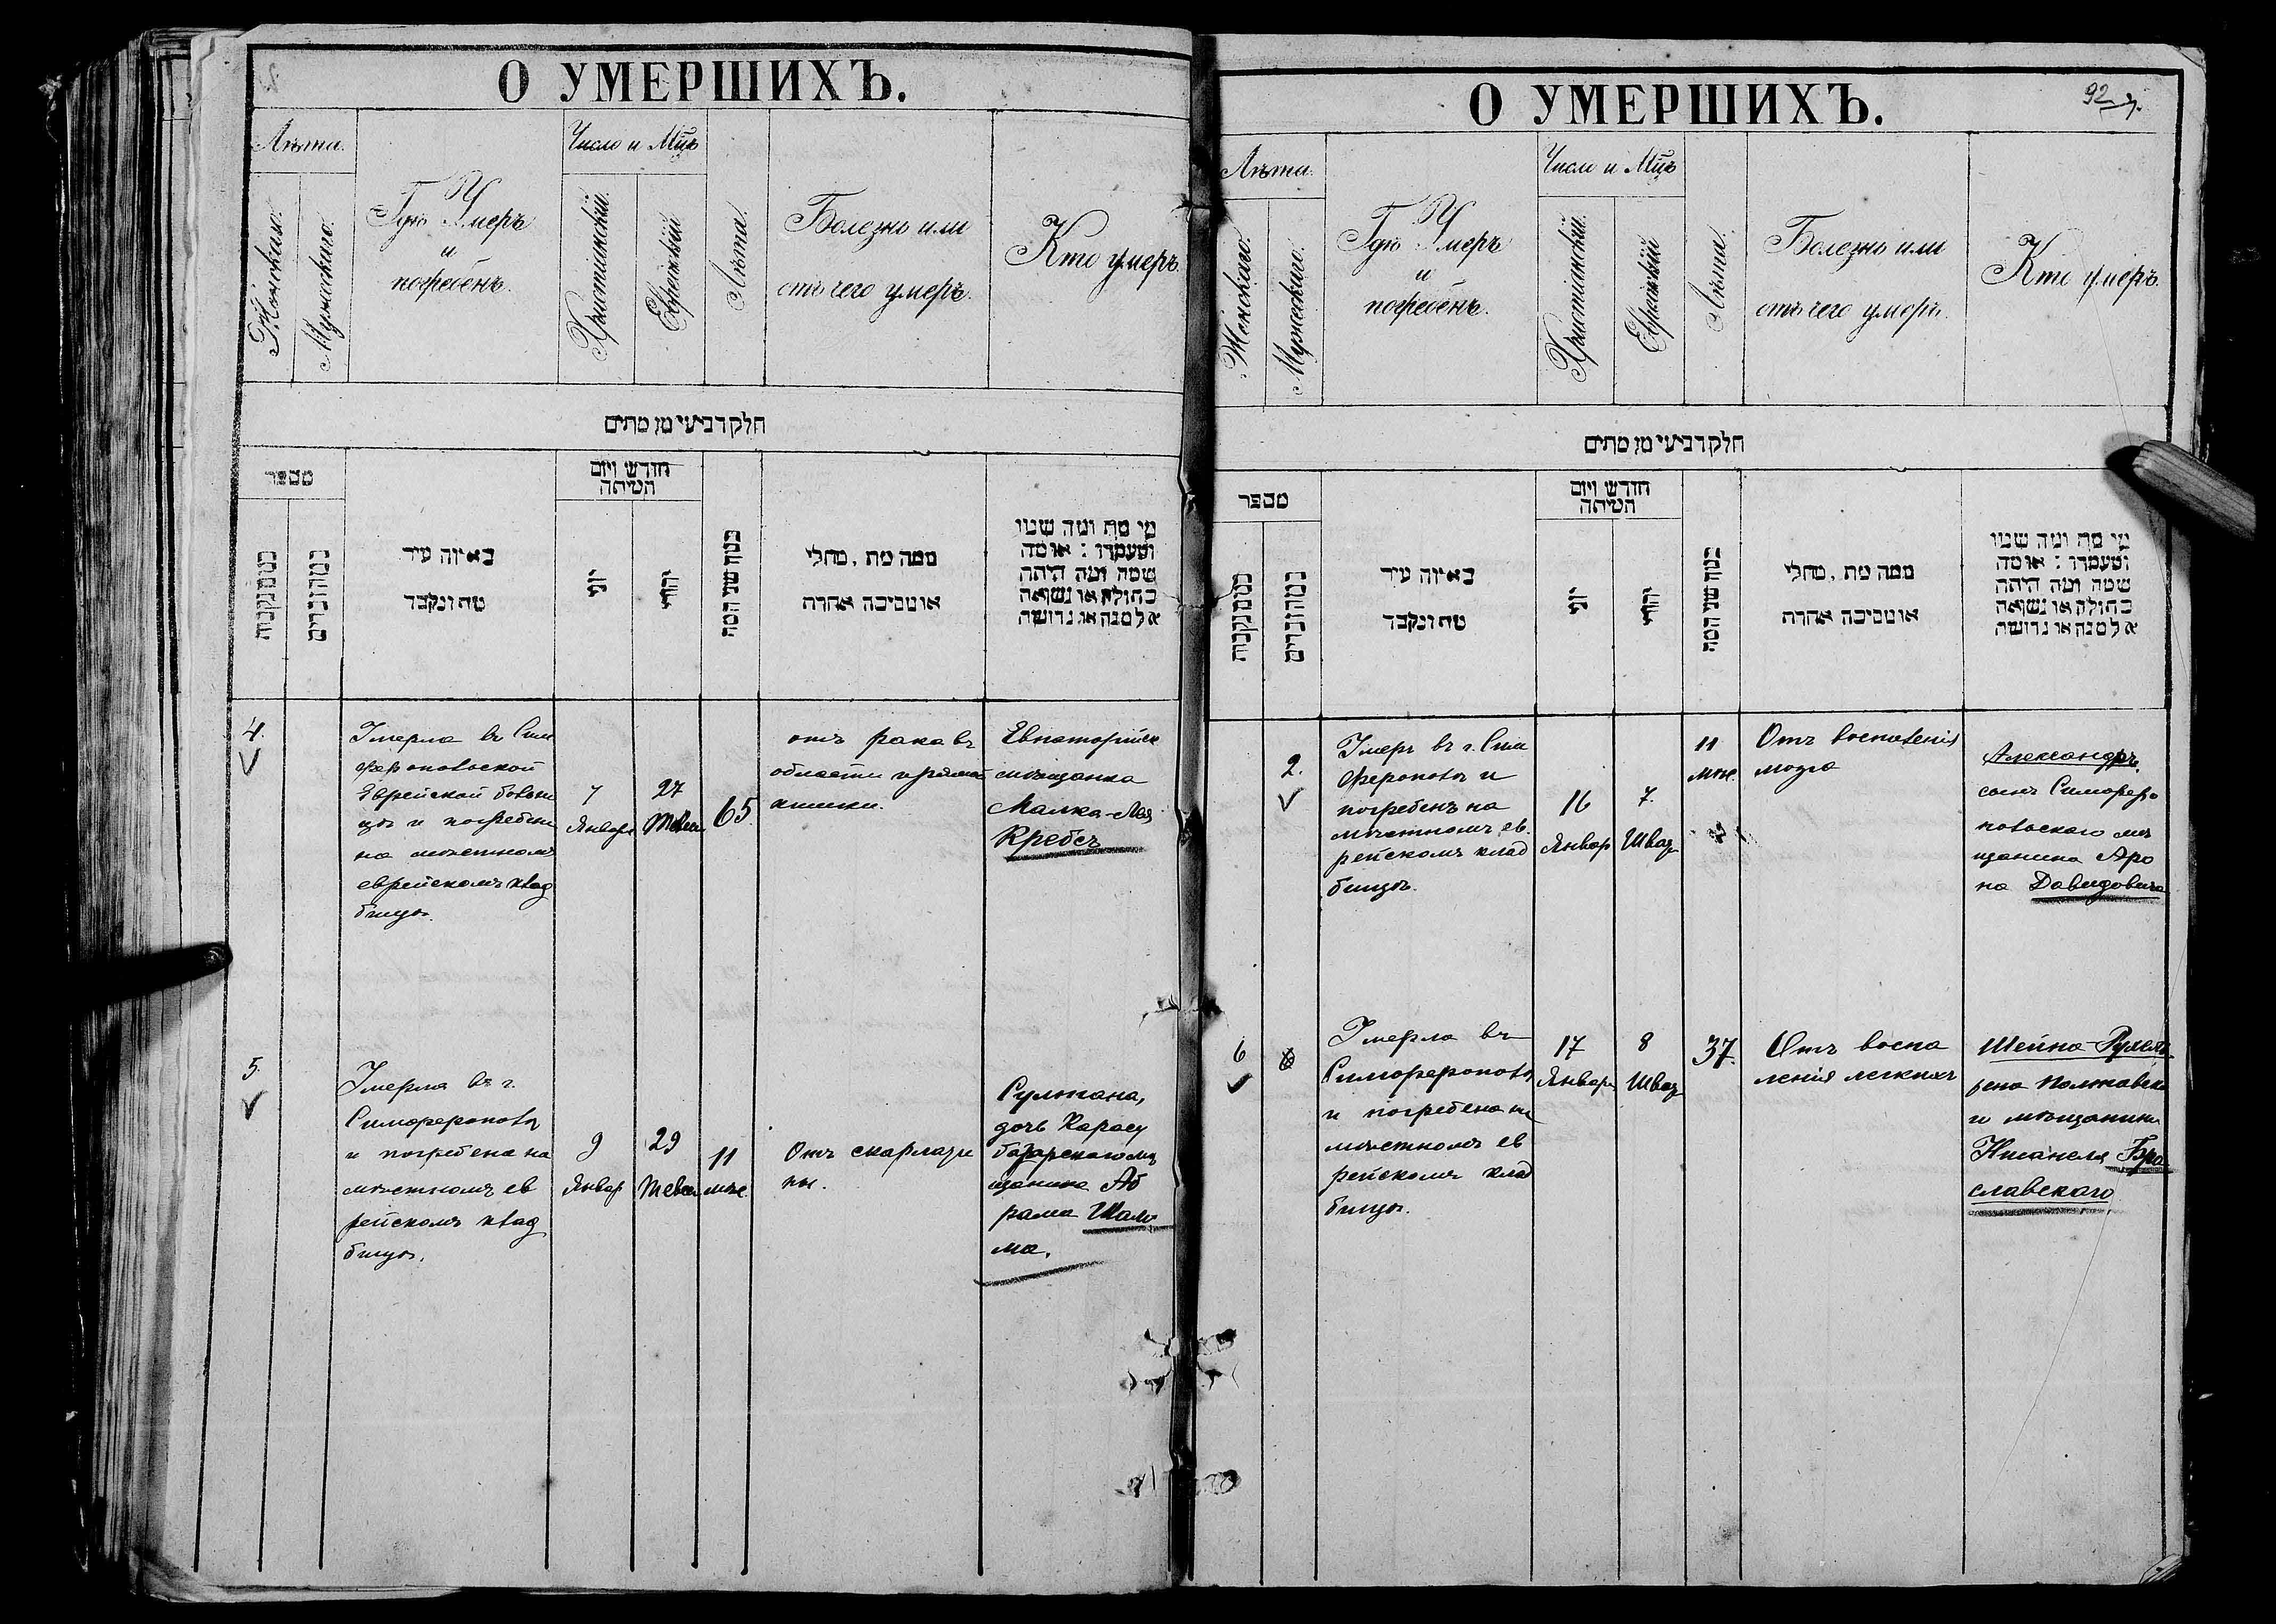 О УМЕРШИХЪ.
Лѣта.
Женскаго.
Мужескаго.
Гдѣ Умеръ
и
погребенъ.
Число и Мцъ
Христіанскій.
Еврейскій
Лѣта.
Болезнь или
отъ чего умеръ.
Кто умеръ.
חלק רביעי מן מתים
מספר
ממין נקבות
ממין זכרים
באיזה עיר
מת ונקבר
חודש ויום
המיתה
יוני
יהודי
כמה שני המת
ממה מת, מחלי
או מסיבה אחרת
מי מת ומה שמו
ומעמדו : או מה
שמה ומה היתה
בתולה או נשואה
אלמנה או גרושה
4.
Умерла въ Сим
феропольской
Еврейской больни
цѣ и погребена
на мѣстномъ
еврейскомъ клад
бищѣ.
7
Января
27
Тевеса
65.
отъ рака въ
области прямой
кишки.
Евпаторійск
мѣщанка
Малка-Лея
Кребсъ
5.
Умерла въ г.
Симферополѣ
и погребена на
мѣстномъ ев
рейскомъ клад
бищѣ.
9
Январ
29
Тевеса
11
мѣс.
Отъ скарлати
ны.
Султана,
дочь Карасу
базарскаго мѣ
щанина Аб
рама Шоло
ма.
О УМЕРШИХЪ.
92
Лѣта.
Женскаго.
Мужескаго.
Гдѣ Умеръ
и
погребенъ.
Число и Мцъ
Христіанскій.
Еврейскій
Лѣта.
Болезнь или
отъ чего умеръ.
Кто умеръ.
חלק רביעי מן מתים
מספר
ממין נקבות
ממין זכרים
באיזה עיר
מת ונקבר
חודש ויום
המיתה
יוני
יהודי
כמה שני המת
ממה מת, מחלי
או מסיבה אחרת
מי מת ומה שמו
ומעמדו : או מה
שמה ומה היתה
בתולה או נשואה
אלמנה או גרושה
2.
Умеръ въ г. Сим
ферополѣ и
погребенъ на
мѣстномъ ев.
рейскомъ клад
бищѣ.
16
Январ
7.
Шват
11
мѣс.
Отъ воспаленія
мозга
Александръ,
сынъ Симферо
польскаго мѣ
щанина Аро
на Давидовича
6
Умерла въ
Симферополѣ
и погребена на
мѣстномъ ев
рейскомъ клад
бищѣ.
17
Января
8
Шват
37.
Отъ воспа
ленія легкихъ
Шейна-Рухель
жена Полтавска
го мѣщанина
Нисонеля Бра
славскаго